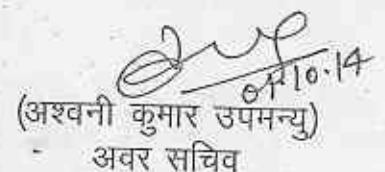 01.10.14
(अश्वनी कुमार उपमन्यु)
- अवर सचिव